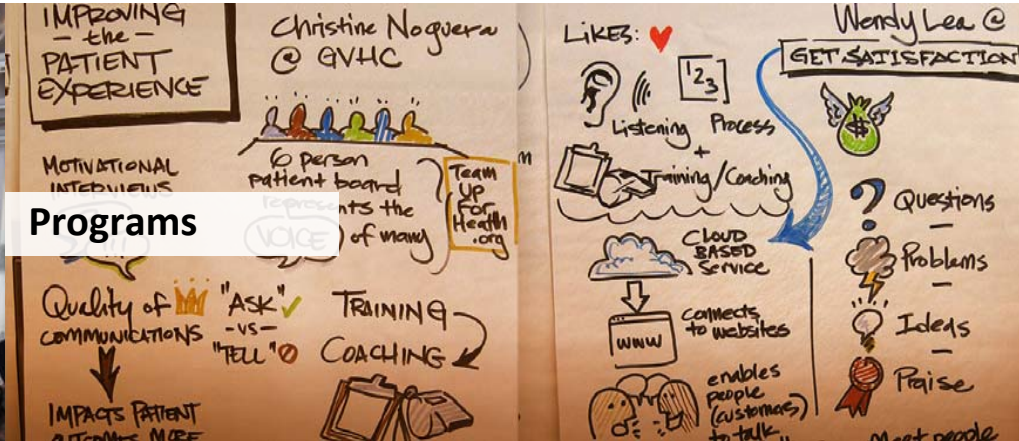 IMPROVING
- the -
PATIENT
EXPERIENCE
Christine Noguera
@ GVHC
MOTIVATIONAL
INTERVIEWS
6 person
patient board
represents the
VOICE of many
Team
Up
For
Health
.org
Programs
Quality of
COMMUNICATIONS
"ASK"
-vs-
"TELL"
TRAINING
COACHING
IMPACTS PATIENT
OUTCOMES MORE
LIKES:
123
Listening Process
+
Training/Coaching
CLOUD
BASED
Service
www
connects
to websites
enables
people
(customers)
to talk
Wendy Lea @
GET SATISFACTION
$
?
Questions
-
Problems
-
Ideas
-
Praise
Most people